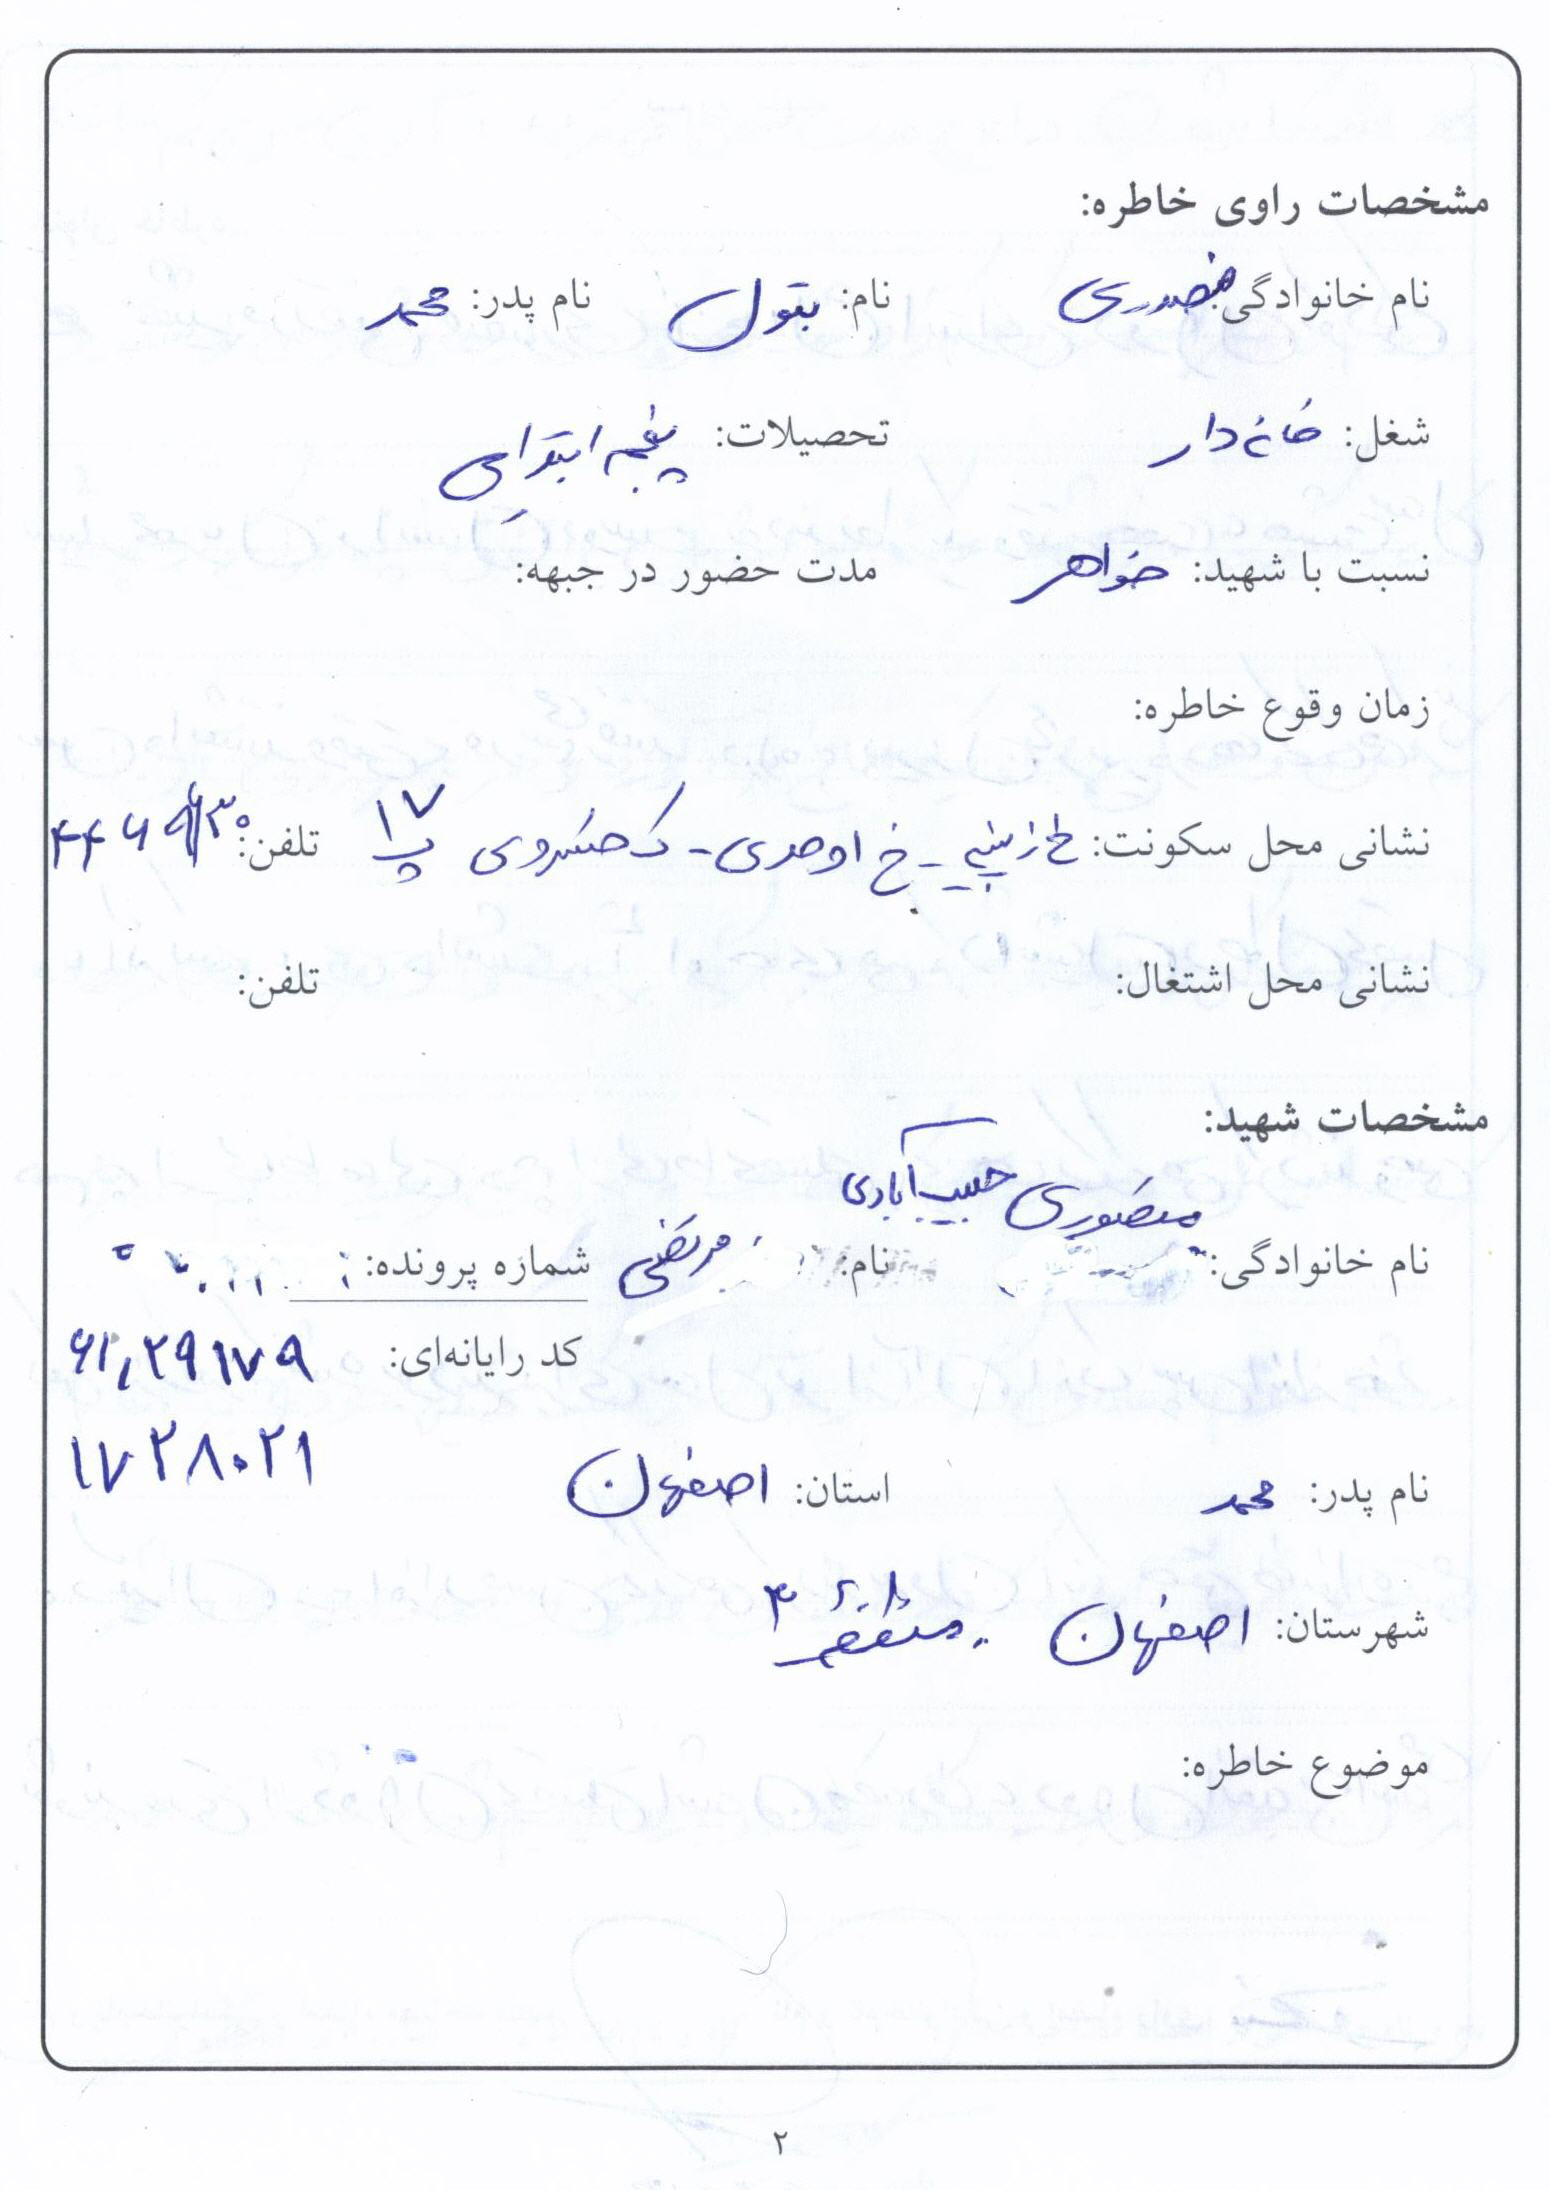 مشخصات راوی خاطره:
نام خانوادگی: منصوری نام: بتول نام پدر: محمد
شغل: خانه دار تحصیلات: پنجم ابتدایی
نسبت با شهید: خواهر مدت حضور در جبهه:
زمان وقوع خاطره:
نشانی محل سکونت: خ زینبیه - خ اوحدی - ک خسروی پ ۱۷ تلفن:
نشانی محل اشتغال: تلفن:
مشخصات شهید:
منصوری حبیب آبادی
نام خانوادگی: نام: مرتضی شماره پرونده:
کد رایانه‌ای: ۶۱۱۲۹۱۷۹
۱۷۲۸۰۲۱
نام پدر: محمد استان: اصفهان
شهرستان: اصفهان - منطقه ۳
موضوع خاطره:
۲